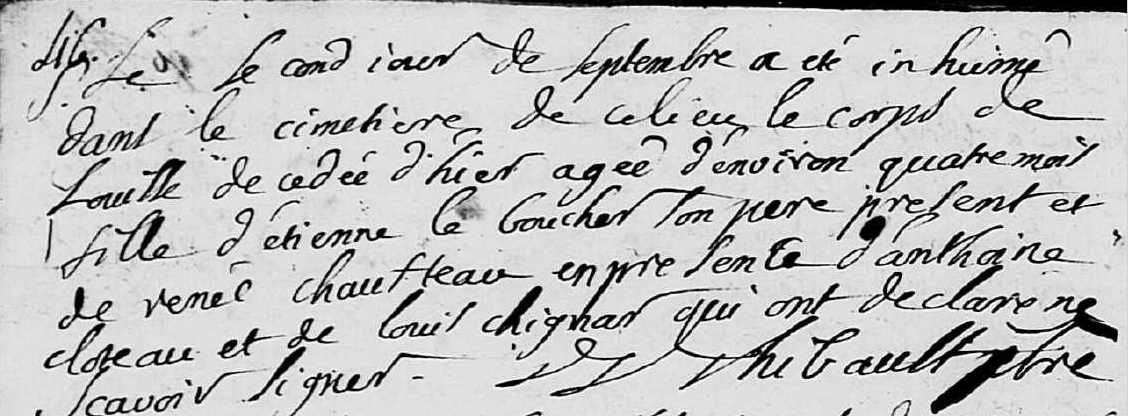 Le second iour de septembre a eté inhumé
dans le cimetiere de ce lieu le corps de
Louise decedée d'hier ageé d'environ quatre mois
fille d'étienne le boucher son pere present et
de reneé en presence d'anthoine
et de louis chignar qui ont declare ne
scavoir signer. Thibault pbre